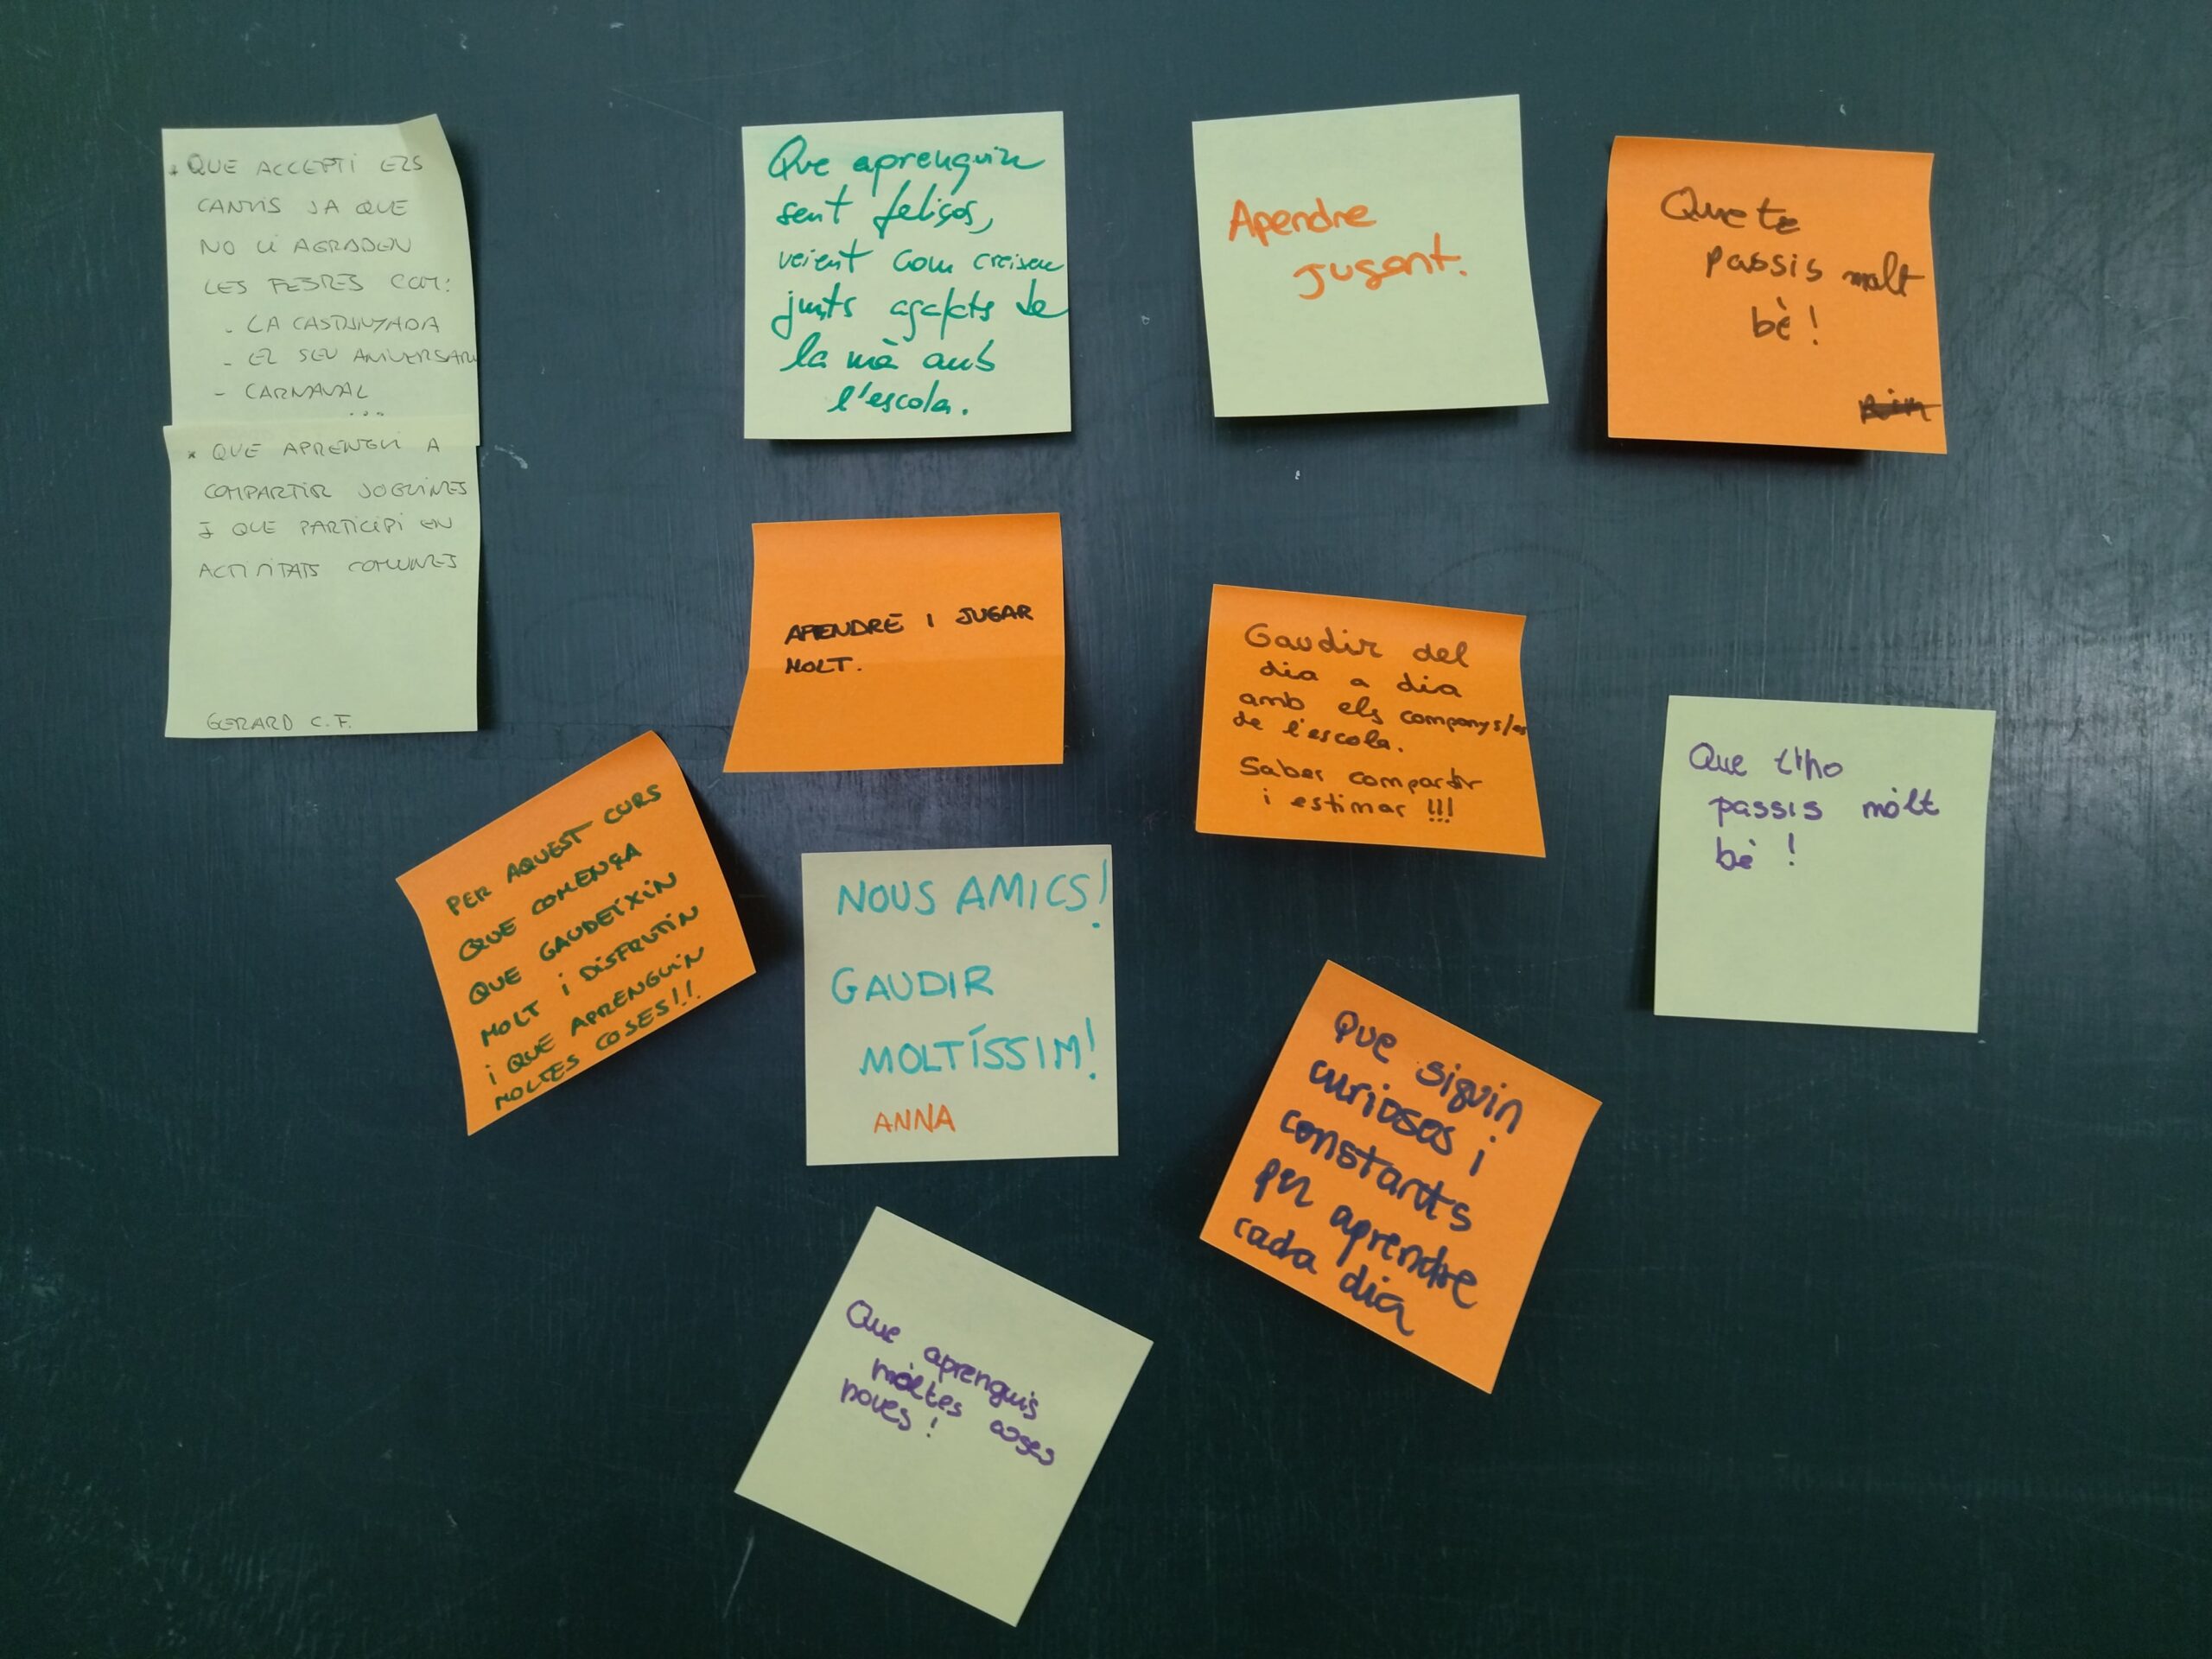 * QUE ACCEPTI ELS
CANVIS JA QUE
NO LI AGRADEN
LES FESTES COM:
- LA CASTANYADA
- EL SEU ANIVERSARI
- CARNAVAL
...
* QUE APRENGUI A
COMPARTIR JOGUINES
I QUE PARTICIPI EN
ACTIVITATS COMUNES
GERARD C.F.
Que aprenguin
sent feliços,
veient com creixen
junts agafats de
la mà amb
l'escola.
Apendre
jugant.
Que te
passis molt
bè!
APENDRE I JUGAR
MOLT.
Gaudir del
dia a dia
amb els companys/es
de l'escola.
Saber compartir
i estimar !!!
Que t'ho
passis mòlt
bè !
PER AQUEST CURS
QUE COMENÇA
QUE GAUDEIXIN
MOLT i DISFRUTIN
i QUE APRENGUIN
MOLTES COSES!!
NOUS AMICS!
GAUDIR
MOLTÍSSIM!
ANNA
Que siguin
curiosos i
constants
per aprendre
cada dia
Que aprenguis
mòltes coses
noves !